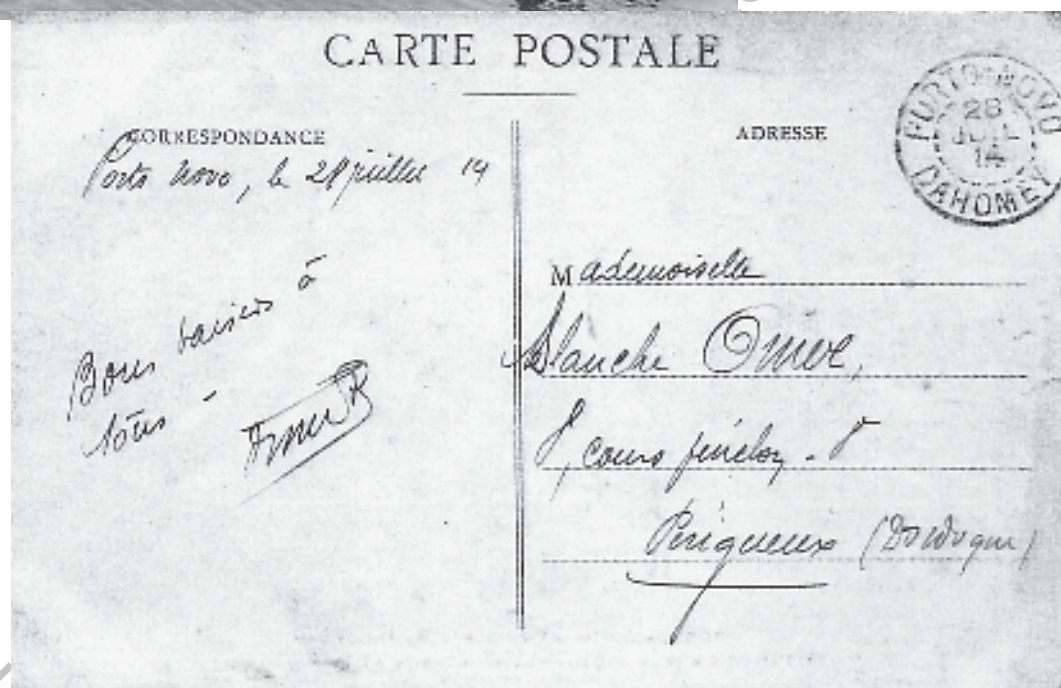 CARTE POSTALE
CORRESPONDANCE
Porto Novo, le 28 juillet 14
Bons baisers à
tous -
ADRESSE
PORTO-NOVO
28
JUIL
14
DAHOMEY
Mademoiselle
Blanche Omer,
8, cours fénelon - 8
Périgueux (Dordogne)